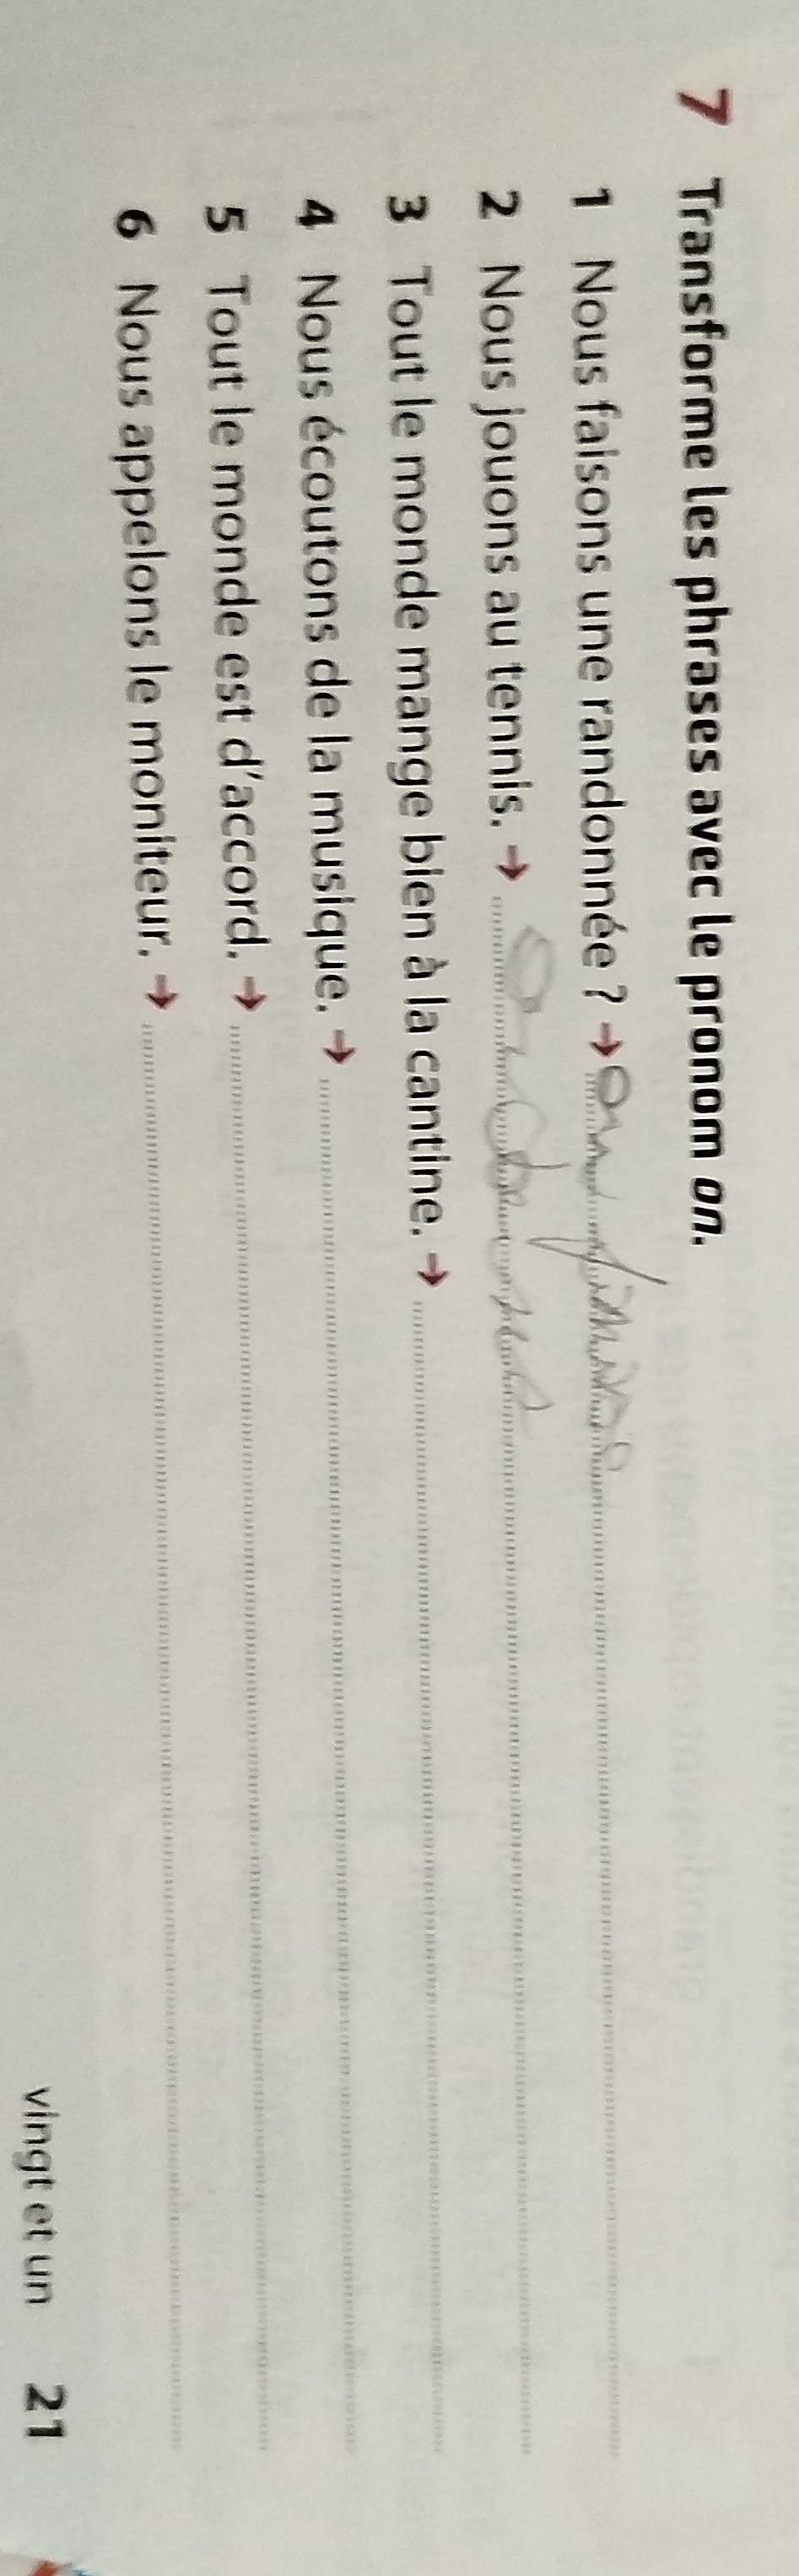 7 Transforme les phrases avec le pronom on.
1 Nous faisons une randonnée ? → on
2 Nous jouons au tennis. →
3 Tout le monde mange bien à la cantine. →
4 Nous écoutons de la musique. →
5 Tout le monde est d'accord. →
6 Nous appelons le moniteur. →
vingt et un 21